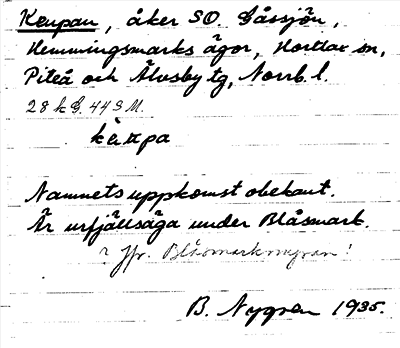 Keupan, åker SO. Gåssjön,
Hemmingsmarks ägor, Hortlax sn,
Piteå och Älvsby tg, Norrb. l.
28 k G. 44 S M.
Namnets uppkomst obekant.
Är urfjällsäga under Blåsmark.
? Jfr. Blåsmarksmyran!
B. Nygren 1935.